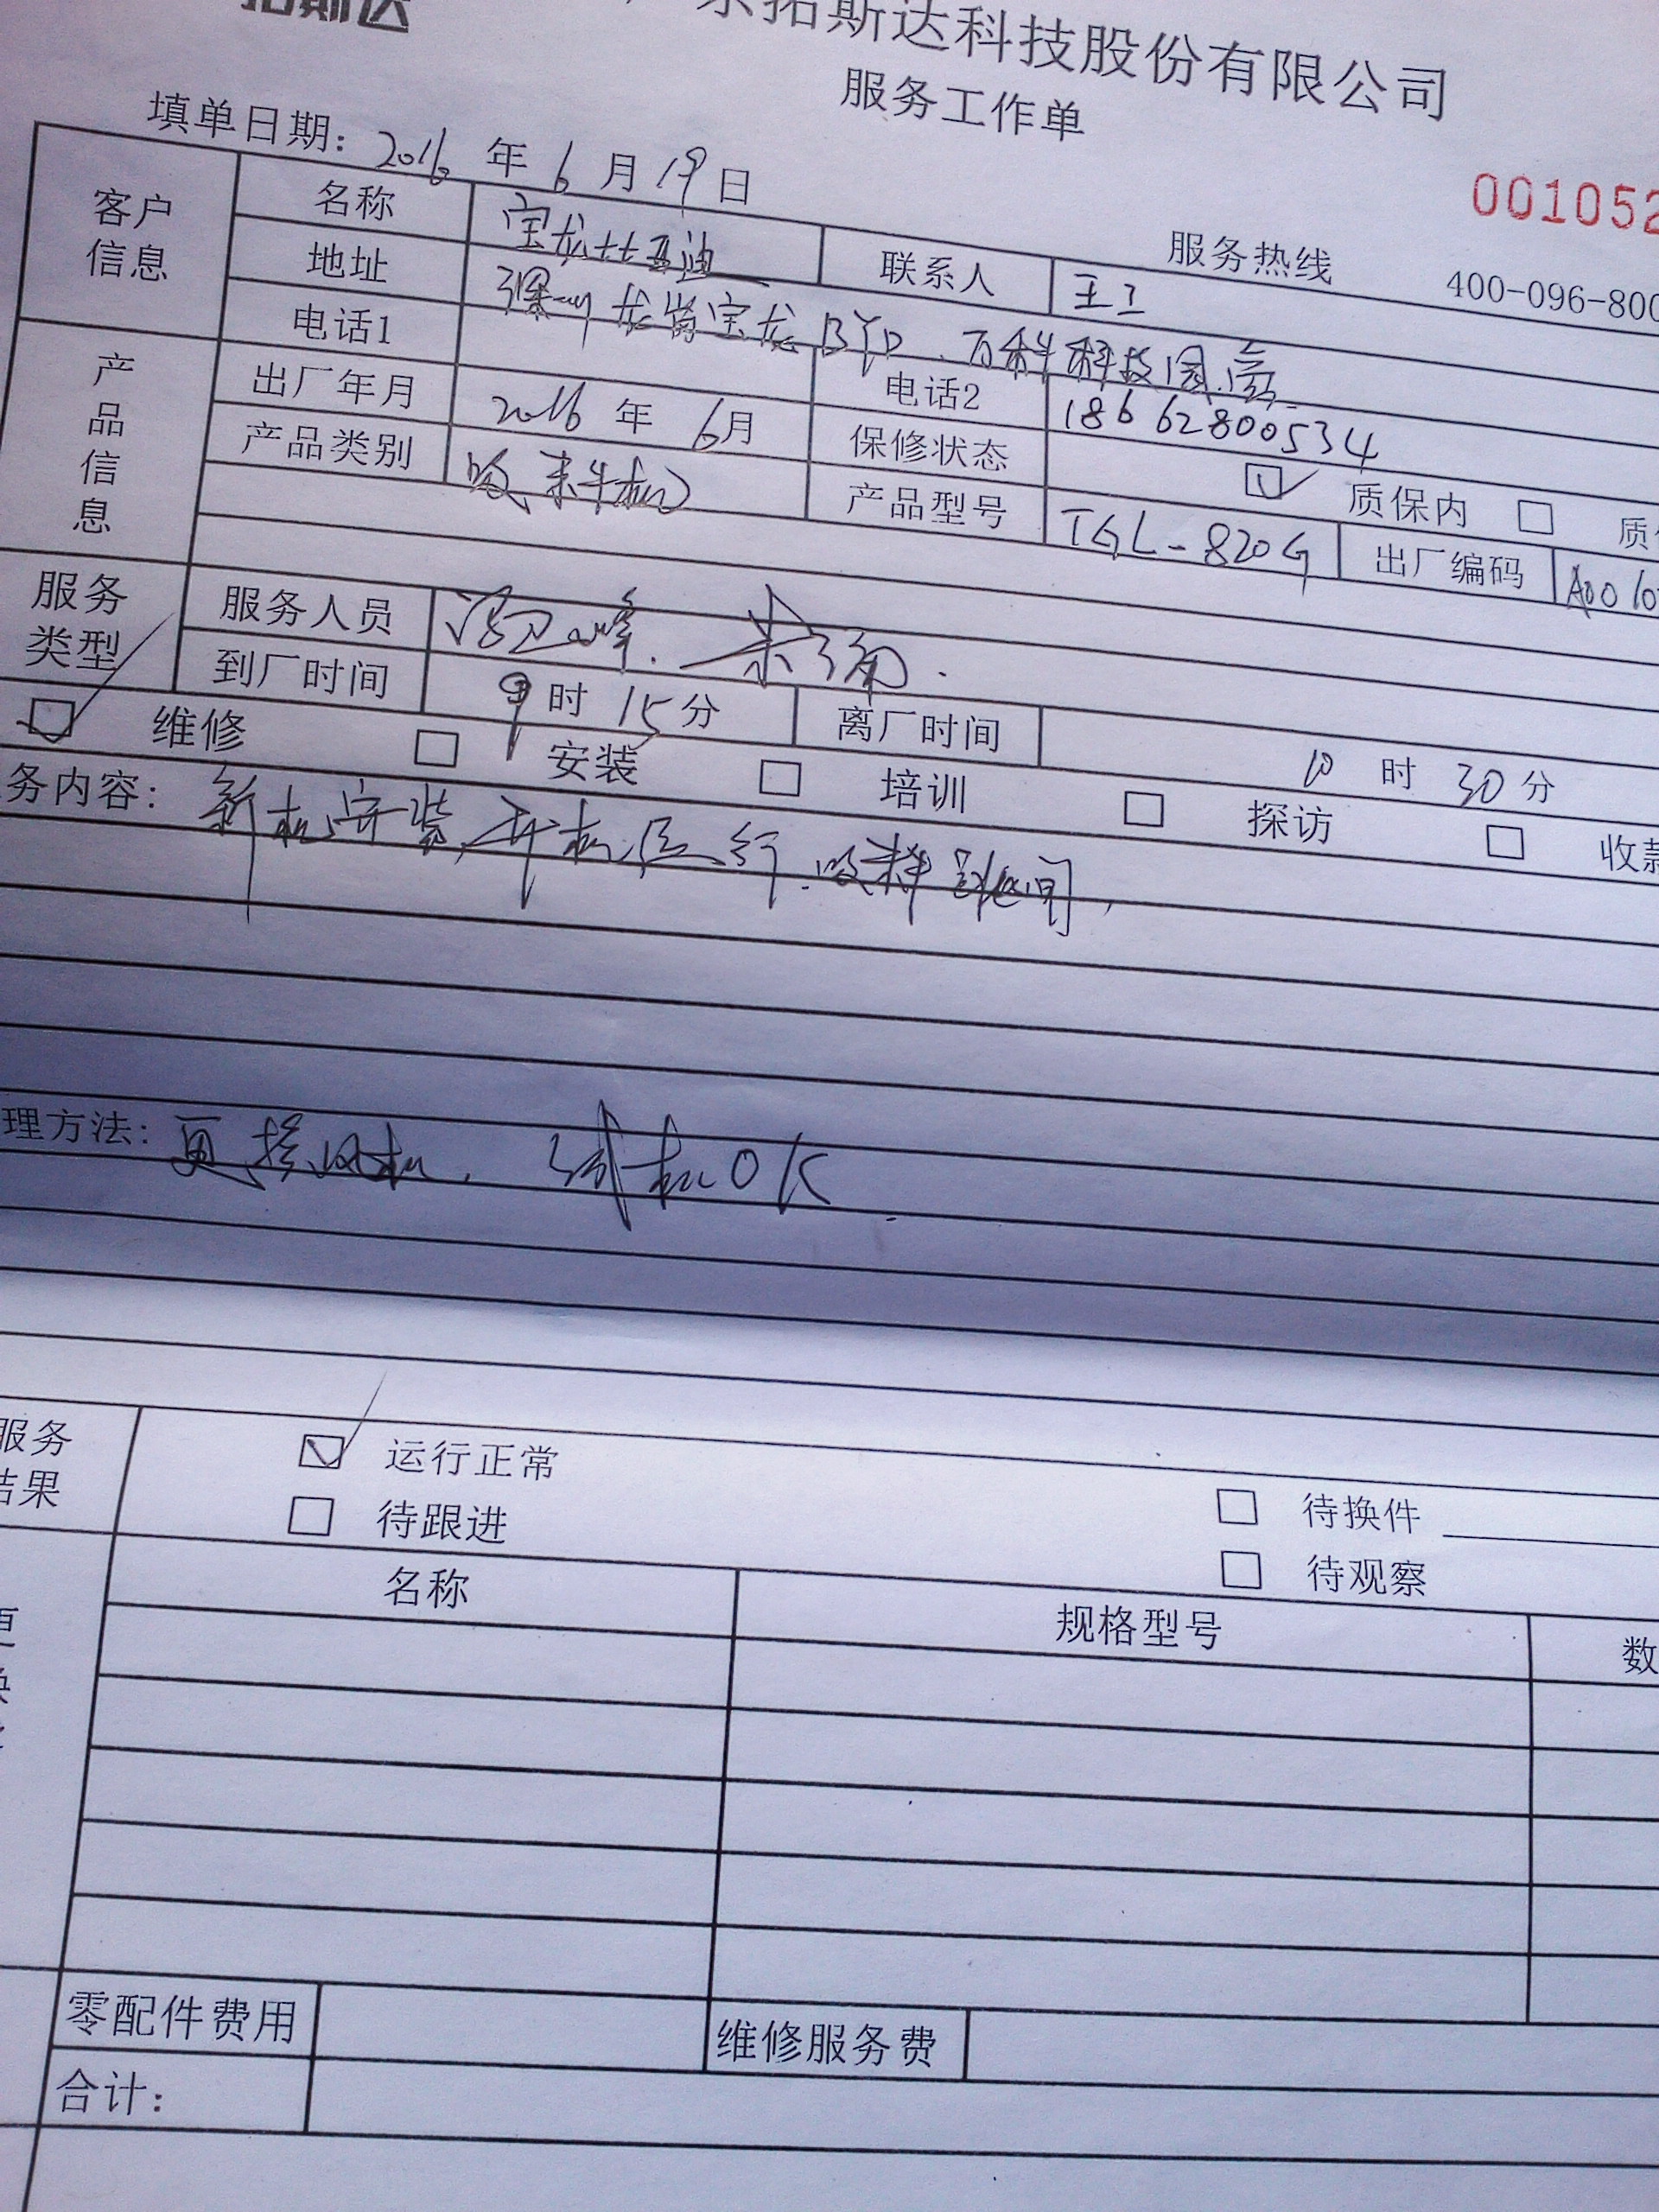 拓斯达
东拓斯达科技股份有限公司
服务工作单
填单日期: 2016 年 6 月 19 日
001052
服务热线 400-096-800
客户信息
名称 宝龙比亚迪 联系人 王工
地址 深圳龙岗宝龙BYD、百科科技园
电话1 电话2 18662800534
产品信息
出厂年月 2016 年 6月 保修状态 质保内 质
产品类别 吸料机 产品型号 TGL-820G 出厂编码 A0010
服务类型
服务人员
到厂时间 9 时 15 分 离厂时间 10 时 30 分
维修 安装 培训 探访 收款
务内容: 新机安装,开机运行,吸料
理方法: 更换风机, 试机OK
服务结果
运行正常 待换件
待跟进 待观察
更换
名称 规格型号 数
零配件费用 维修服务费
合计: